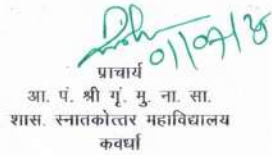 01/07/25
प्राचार्य
आ. पं. श्री गृं. मु. ना. सा.
शास. स्नातकोत्तर महाविद्यालय
कवर्धा